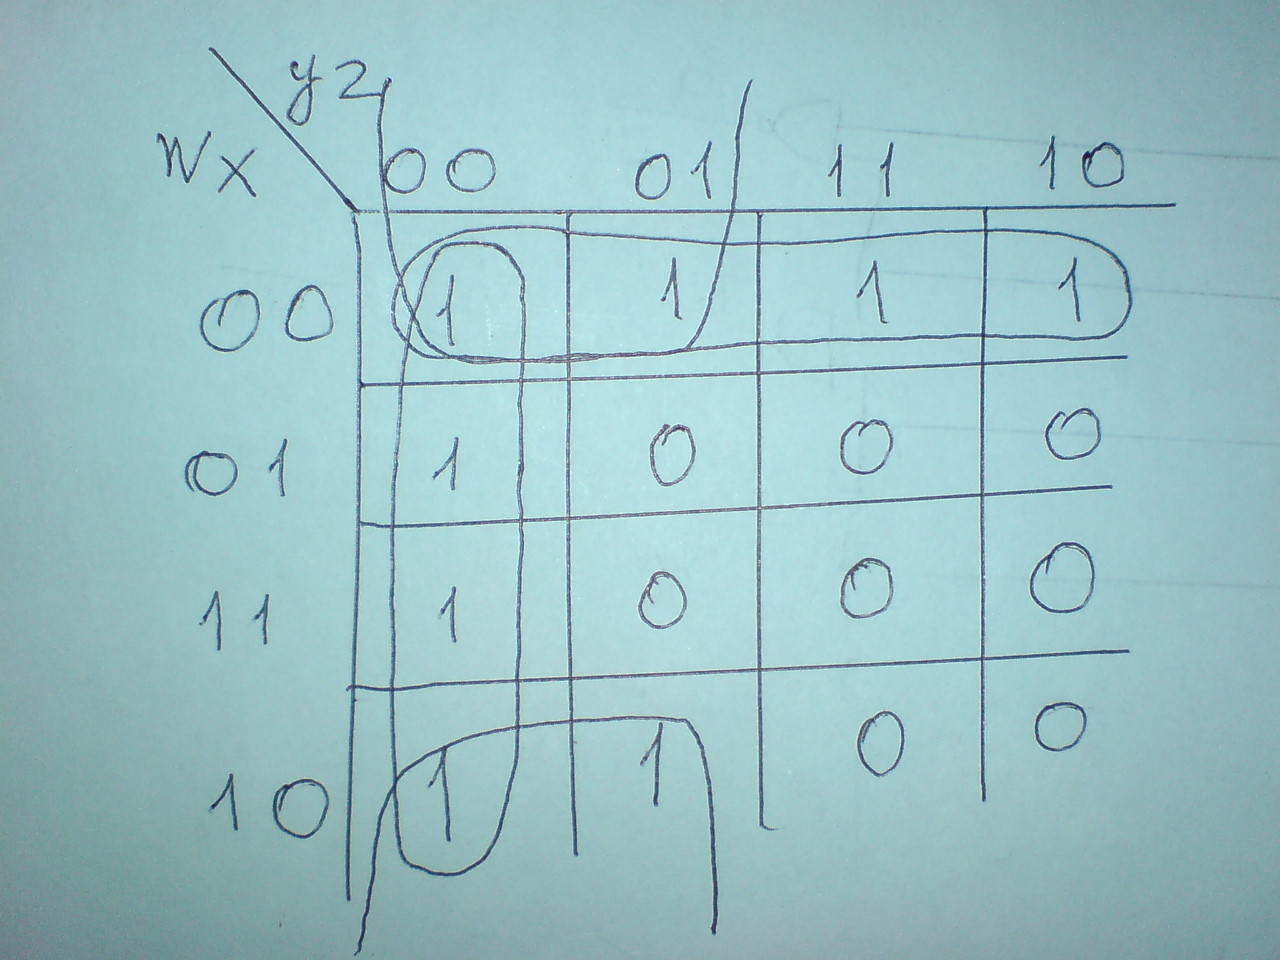 yz
wx
00 01 11 10
00 1 1 1 1
01 1 0 0 0
11 1 0 0 0
10 1 1 0 0